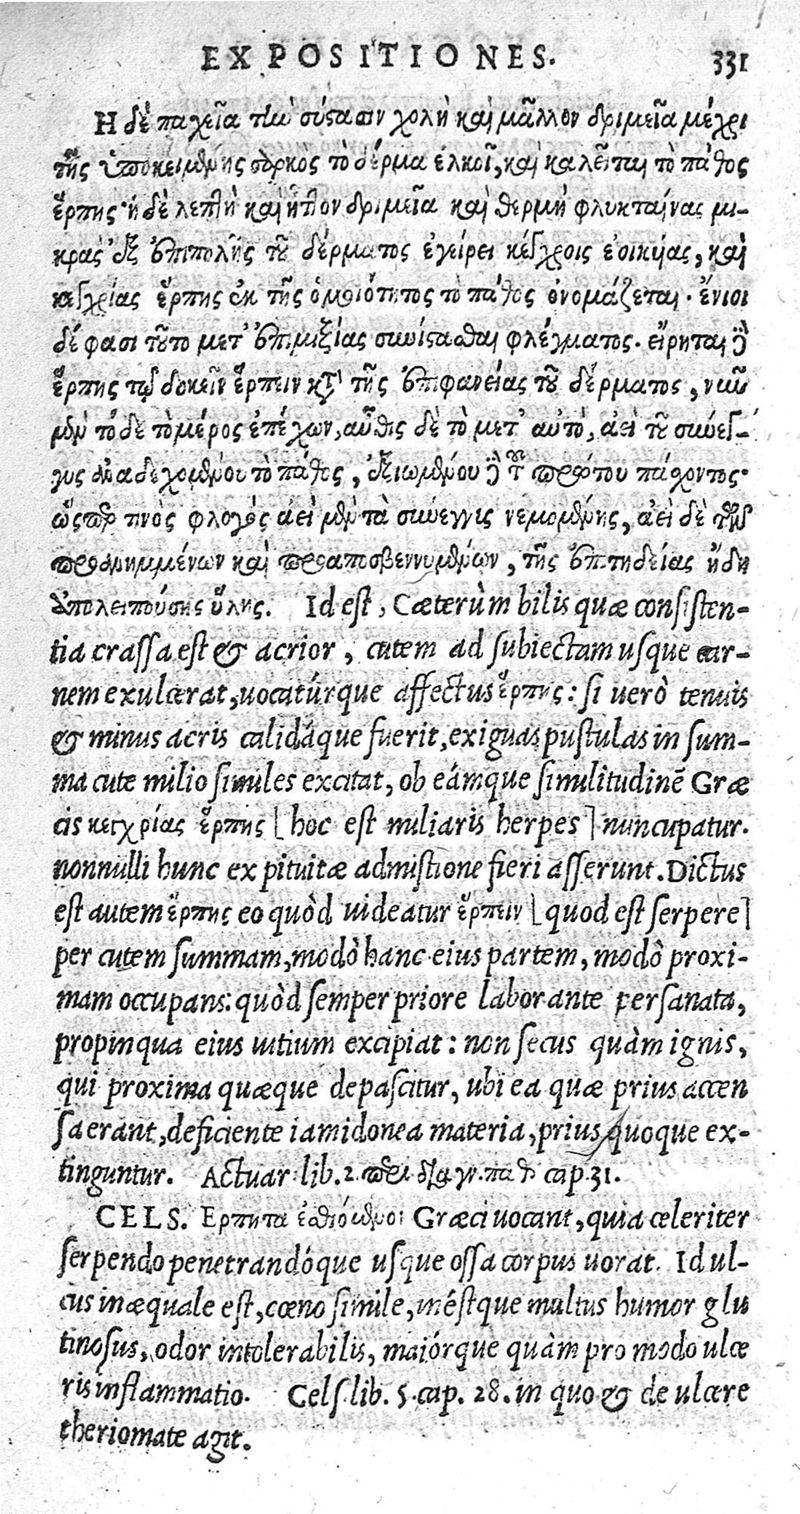 EXPOSITIONES. 331
Η δὲ παχεῖα τὴν σύστασιν χολὴ καὶ μᾶλλον δριμεῖα μέχρι
τῆς ὑποκειμένης σαρκὸς τὸ δέρμα ἑλκοῖ, καὶ καλεῖται τὸ πάθος
ἕρπης· ἡ δὲ λεπτὴ καὶ ἧττον δριμεῖα καὶ θερμὴ φλυκταίνας μι-
κρὰς ἐξ ἐπιπολῆς τοῦ δέρματος ἐγείρει κέγχροις ἐοικυίας, καὶ
κεγχρίας ἕρπης ἐκ τῆς ὁμοιότητος τὸ πάθος ὀνομάζεται. ἔνιοι
δέ φασι τοῦτο μετ' ἐπιμιξίας συνίστασθαι φλέγματος. εἴρηται δὲ
ἕρπης τῷ δοκεῖν ἕρπειν κατὰ τῆς ἐπιφανείας τοῦ δέρματος, νῦν
μὲν τόδε τὸ μέρος ἐπέχων, αὖθις δὲ τὸ μετ' αὐτὸ, ἀεὶ τοῦ συνεγ-
γυς ἀναδεχομένου τὸ πάθος, ἐξιωμένου δὲ τοῦ πρώτου πάσχοντος·
ὥσπερ τινὸς φλογὸς ἀεὶ μὲν τὰ σύνεγγις νεμομένης, ἀεὶ δὲ τῶν
προανημμένων καὶ προαποσβεννυμένων, τῆς ἐπιτηδείας ἤδη
ὑπολειπούσης ὕλης. Id est, Cæterùm bilis quæ consisten-
tia crassa est & acrior, cutem ad subiectam usque car-
nem exulcerat, uocatúrque affectus ἕρπης: si uerò tenuis
& minus acris calidáque fuerit, exiguas pustulas in sum-
ma cute milio similes excitat, ob eámque similitudinē Græ
cis κεγχρίας ἕρπης [hoc est miliaris herpes] nuncupatur.
nonnulli hunc ex pituitæ admistione fieri asserunt. Dictus
est autem ἕρπης eo quòd uideatur ἕρπειν [quod est serpere]
per cutem summam, modò hanc eius partem, modò proxi-
mam occupans: quòd semper priore laborante persanata,
propinqua eius uitium excipiat: non secus quàm ignis,
qui proxima quæque depascitur, ubi ea quæ prius accen
sa erant, deficiente iam idonea materia, prius quoque ex-
tinguntur. Actuar. lib. 2. περι διαγν. παθ cap. 31.
CELS. Ερπητα ἐσθιόμενοι Græci uocant, quia celeriter
serpendo penetrandóque usque ossa corpus uorat. Id ul-
cus inæquale est, cœno simile, inéstque multus humor glu
tinosus, odor intolerabilis, maiórque quàm pro modo ulce
ris inflammatio. Cels. lib. 5. cap. 28. in quo & de ulcere
theriomate agit.